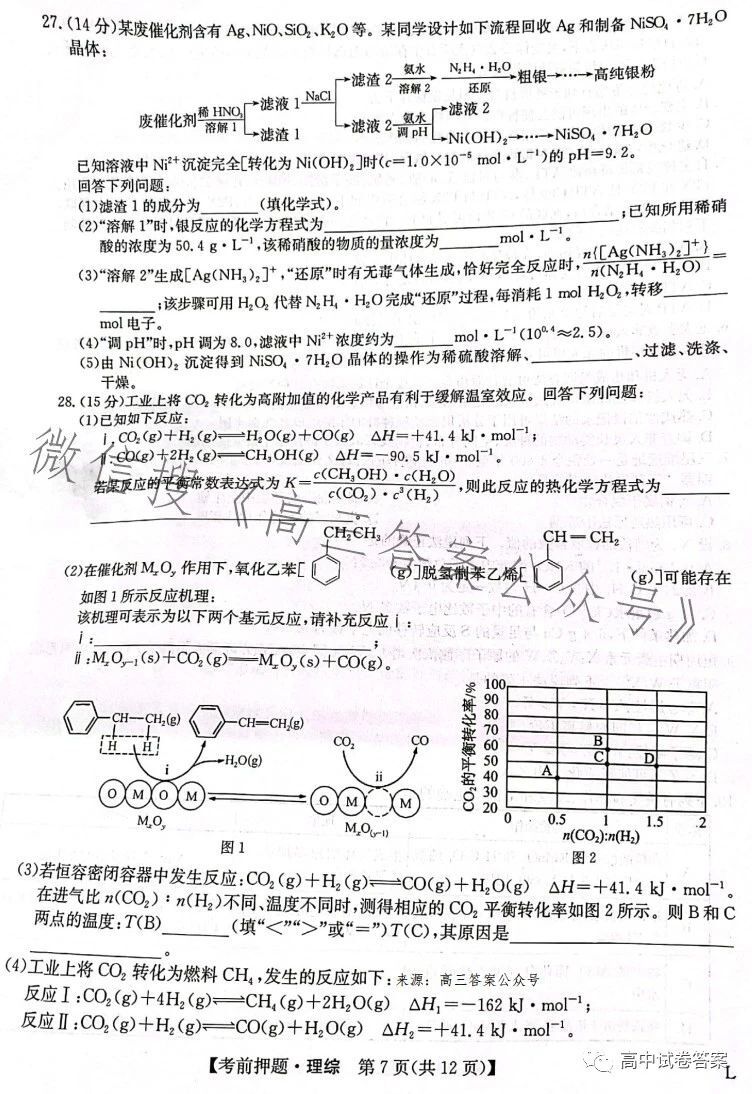 27.(14分)某废催化剂含有 Ag、NiO、SiO₂、K₂O 等。某同学设计如下流程回收 Ag 和制备 NiSO₄·7H₂O
晶体:
废催化剂 稀 HNO₃ 溶解 1 滤液 1 NaCl 滤渣 2 氨水 溶解 2 N₂H₄·H₂O 还原 粗银→……→高纯银粉
滤渣 1 滤液 2 氨水 调 pH 滤液 2
Ni(OH)₂→……→NiSO₄·7H₂O
已知溶液中 Ni²⁺ 沉淀完全[转化为 Ni(OH)₂]时(c=1.0×10⁻⁵ mol·L⁻¹)的 pH=9.2。
回答下列问题:
(1)滤渣 1 的成分为______(填化学式)。
(2)“溶解 1”时,银反应的化学方程式为______;已知所用稀硝
酸的浓度为 50.4 g·L⁻¹,该稀硝酸的物质的量浓度为______mol·L⁻¹。
(3)“溶解 2”生成[Ag(NH₃)₂]⁺,“还原”时有无毒气体生成,恰好完全反应时,n{[Ag(NH₃)₂]⁺}/n(N₂H₄·H₂O)=
______;该步骤可用 H₂O₂ 代替 N₂H₄·H₂O 完成“还原”过程,每消耗 1 mol H₂O₂,转移______
mol 电子。
(4)“调 pH”时,pH 调为 8.0,滤液中 Ni²⁺ 浓度约为______mol·L⁻¹(10⁰·⁴≈2.5)。
(5)由 Ni(OH)₂ 沉淀得到 NiSO₄·7H₂O 晶体的操作为稀硫酸溶解、______、______、过滤、洗涤、
干燥。
28.(15分)工业上将 CO₂ 转化为高附加值的化学产品有利于缓解温室效应。回答下列问题:
(1)已知如下反应:
ⅰ.CO₂(g)+H₂(g)⇌H₂O(g)+CO(g) ΔH=+41.4 kJ·mol⁻¹;
ⅱ.CO(g)+2H₂(g)⇌CH₃OH(g) ΔH=-90.5 kJ·mol⁻¹。
若某反应的平衡常数表达式为 K=c(CH₃OH)·c(H₂O)/c(CO₂)·c³(H₂),则此反应的热化学方程式为______
______。
CH₂CH₃ CH=CH₂
(2)在催化剂 MₓOᵧ 作用下,氧化乙苯[ (g)]脱氢制苯乙烯[ (g)]可能存在
如图 1 所示反应机理:
该机理可表示为以下两个基元反应,请补充反应ⅰ:
ⅰ:______;
ⅱ:MₓOᵧ₋₁(s)+CO₂(g)══MₓOᵧ(s)+CO(g)。
CH—CH₂(g) CH=CH₂(g)
H H
H₂O(g)
ⅰ
O M O M
MₓOᵧ
CO₂ CO
ⅱ
O M M
MₓO₍ᵧ₋₁₎
图 1
CO₂的平衡转化率/%
100
90
80
70
60
50
40
30
20
A B C D
0 0.5 1 1.5 2
n(CO₂):n(H₂)
图 2
(3)若恒容密闭容器中发生反应:CO₂(g)+H₂(g)⇌CO(g)+H₂O(g) ΔH=+41.4 kJ·mol⁻¹。
在进气比 n(CO₂):n(H₂)不同、温度不同时,测得相应的 CO₂ 平衡转化率如图 2 所示。则 B 和 C
两点的温度:T(B)______(填“<”“>”或“=”)T(C),其原因是______
______。
(4)工业上将 CO₂ 转化为燃料 CH₄,发生的反应如下:来源:高三答案公众号
反应Ⅰ:CO₂(g)+4H₂(g)⇌CH₄(g)+2H₂O(g) ΔH₁=-162 kJ·mol⁻¹;
反应Ⅱ:CO₂(g)+H₂(g)⇌CO(g)+H₂O(g) ΔH₂=+41.4 kJ·mol⁻¹。
【考前押题·理综 第 7 页(共 12 页)】
L
微信搜《高三答案公众号》
高中试卷答案